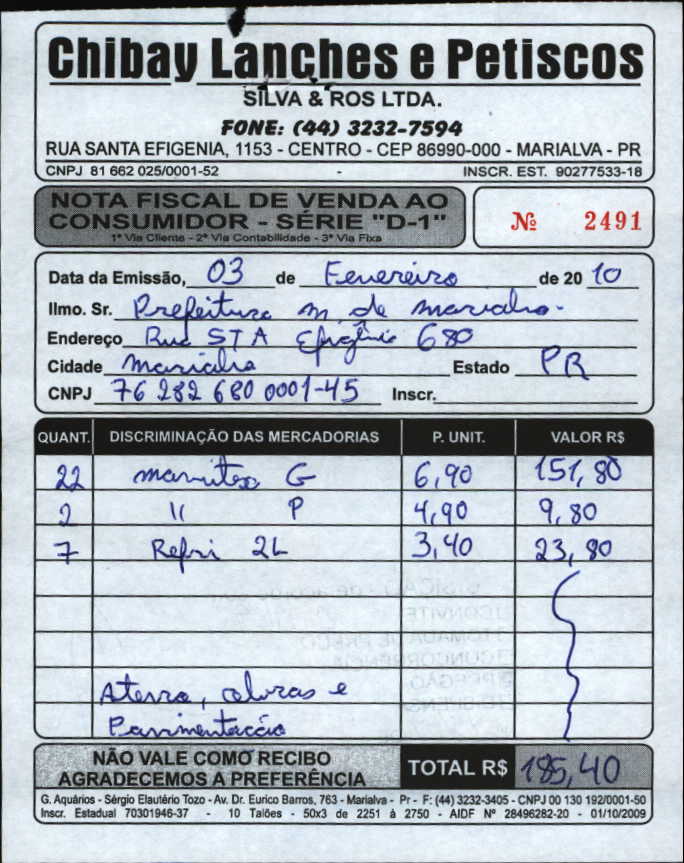 Chibay Lanches e Petiscos
SILVA & ROS LTDA.
FONE: (44) 3232-7594
RUA SANTA EFIGENIA, 1153 - CENTRO - CEP 86990-000 - MARIALVA - PR
CNPJ 81 662 025/0001-52 - INSCR. EST. 90277533-18
NOTA FISCAL DE VENDA AO
CONSUMIDOR - SÉRIE "D-1"
1ª Via Cliente - 2ª Via Contabilidade - 3ª Via Fixa
Nº 2491
Data da Emissão, 03 de Fevereiro de 2010
Ilmo. Sr. Prefeitura m. de marialva.
Endereço Rua STA Efigênia 680
Cidade marialva Estado PR
CNPJ 76 282 680 0001-45 Inscr.
QUANT. DISCRIMINAÇÃO DAS MERCADORIAS P. UNIT. VALOR R$
22 marmitex G 6,90 151,80
2 " P 4,90 9,80
7 Refri 2L 3,40 23,80
Aterro, obras e
Pavimentação
NÃO VALE COMO RECIBO
AGRADECEMOS A PREFERÊNCIA
TOTAL R$ 185,40
G. Aquários - Sérgio Elautério Tozo - Av. Dr. Eurico Barros, 763 - Marialva - Pr - F: (44) 3232-3405 - CNPJ 00 130 192/0001-50
Inscr. Estadual 70301946-37 - 10 Talões - 50x3 de 2251 à 2750 - AIDF Nº 28496282-20 - 01/10/2009